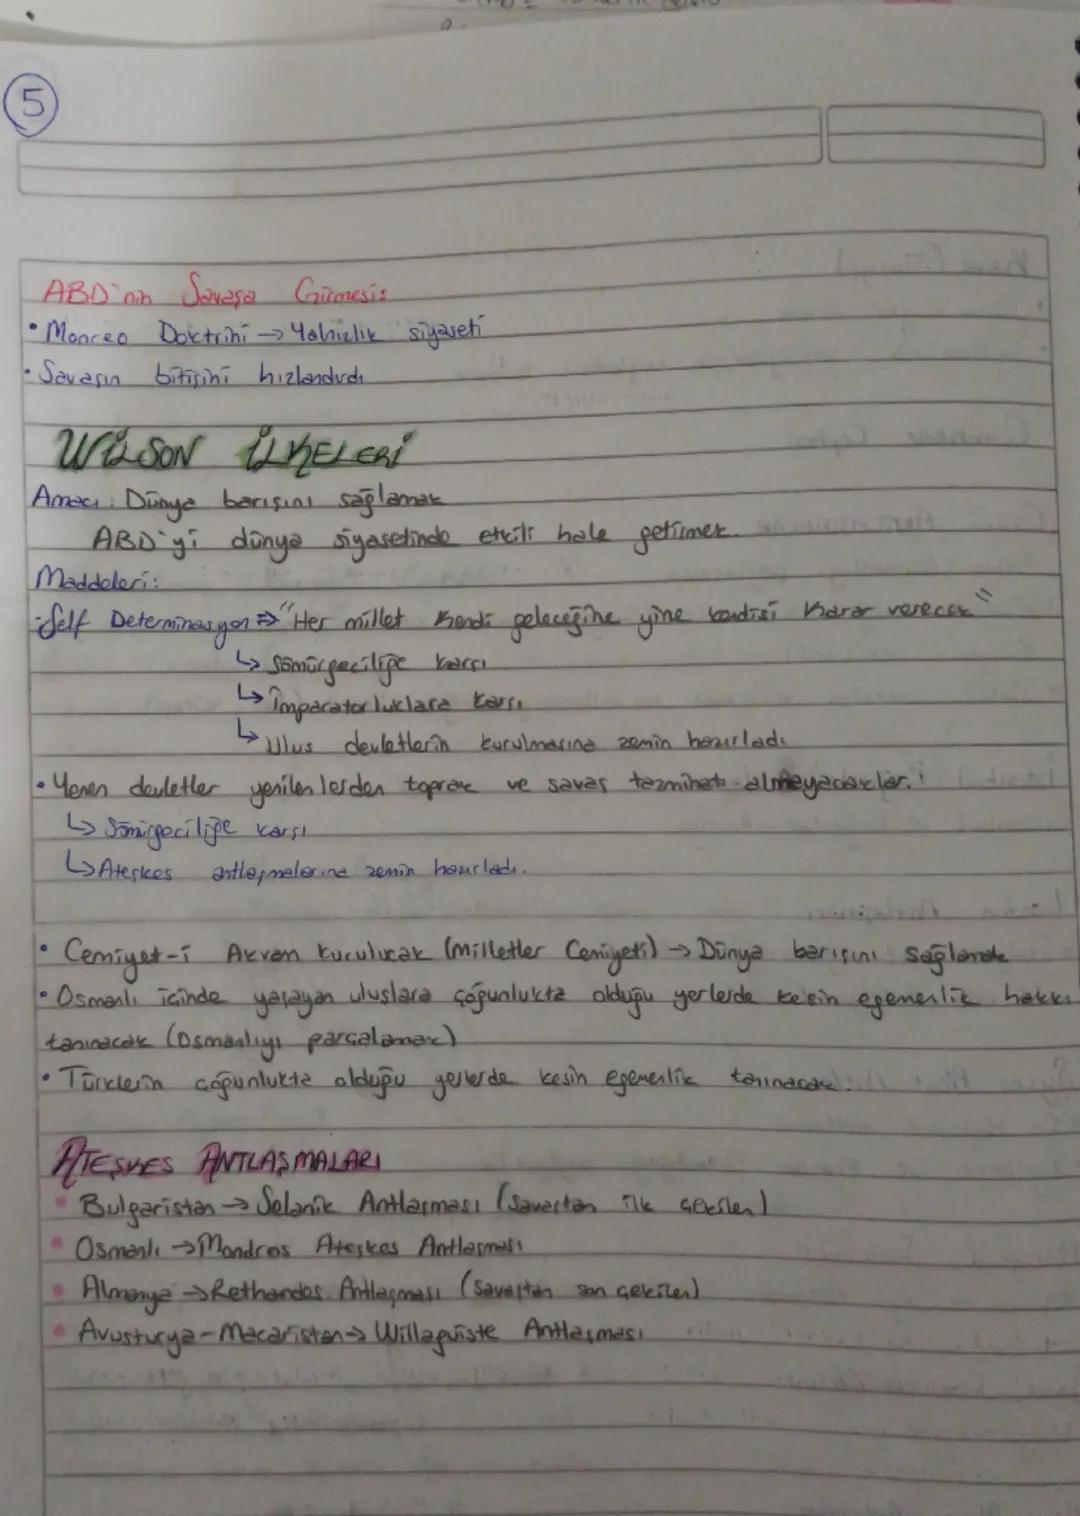 5
ABD'nin Savaşa Girmesi:
• Monreo Doktrini → Yalnızlık siyaseti
• Savaşın bitişini hızlandırdı
WİLSON İLKELERİ
Amacı: Dünya barışını sağlamak
ABD'yi dünya siyasetinde etkili hale getirmek.
Maddeleri:
-Self Determinasyon ⇒ "Her millet kendi geleceğine yine kendisi karar verecek"
↳ Sömürgeciliğe karşı
↳ İmparatorluklara karşı
↳ Ulus devletlerin kurulmasına zemin hazırladı
• Yenen devletler yenilenlerden toprak ve savaş tazminatı almayacaklar.
↳ Sömürgeciliğe karşı
↳ Ateşkes antlaşmalarına zemin hazırladı.
• Cemiyet-i Akvam kurulucak (Milletler Cemiyeti) → Dünya barışını sağlamak
• Osmanlı içinde yaşayan uluslara çoğunlukta olduğu yerlerde kesin egemenlik hakkı
tanınacak (Osmanlıyı parçalamak)
• Türklerin çoğunlukta olduğu yerlerde kesin egemenlik tanınacak.
ATEŞKES ANTLAŞMALARI
• Bulgaristan → Selanik Antlaşması (Savaştan ilk çekilen)
• Osmanlı → Mondros Ateşkes Antlaşması
• Almanya → Rethandes Antlaşması (Savaştan son çekilen)
• Avusturya-Macaristan → Willaguiste Antlaşması